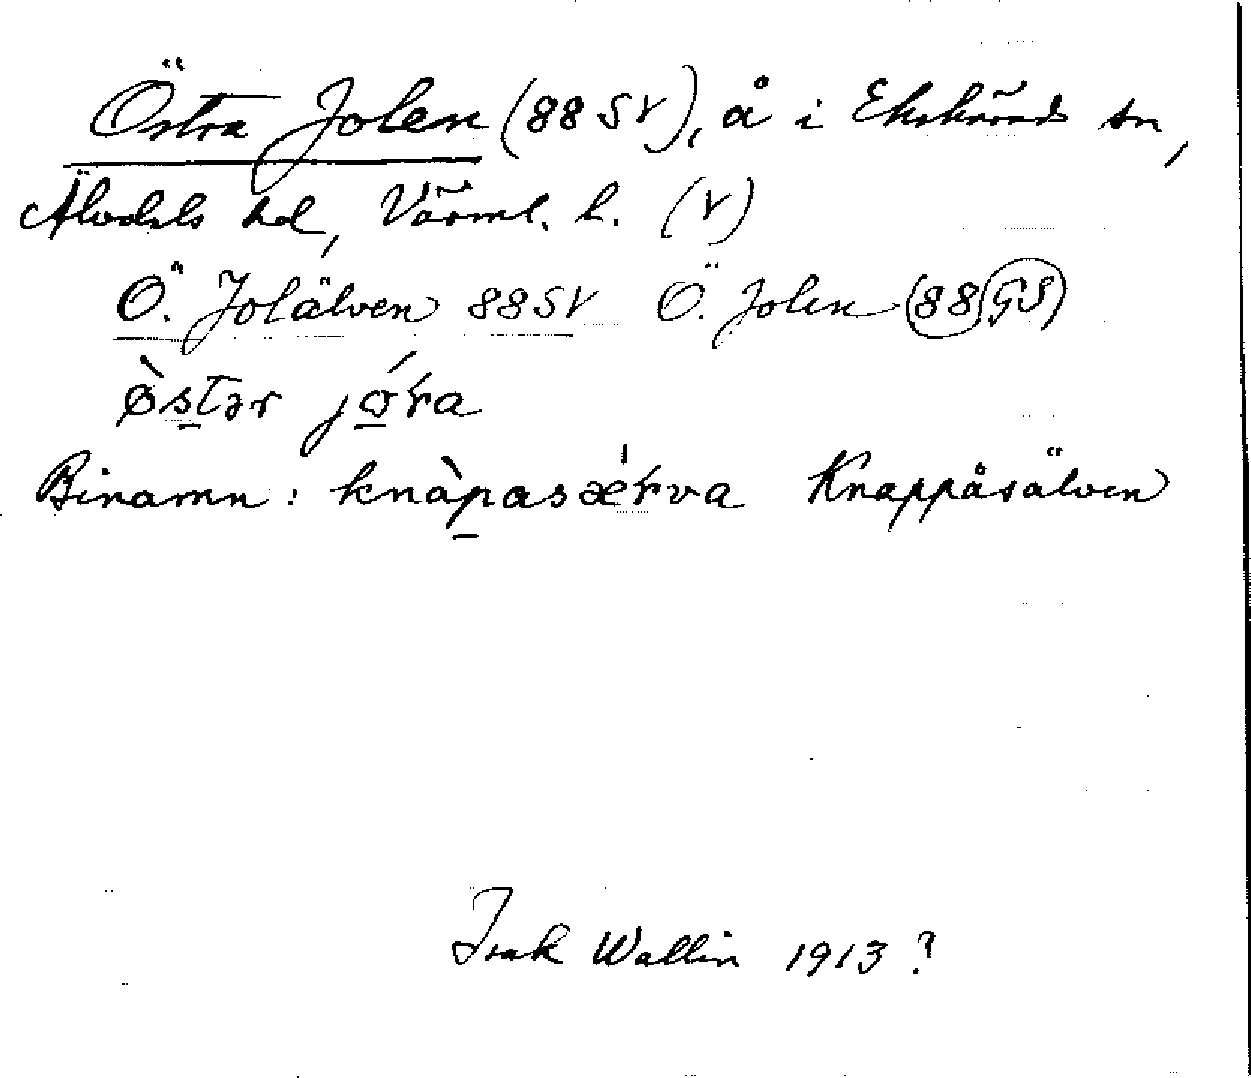 Östra Jolen (88 SV), å i Ekshärads sn,
Älvdals hd, Värml. l. (V)
Ö. Jolälven 88SV Ö. Jolen (88 GS)
ø̀stər jóra
Binamn: knàpasǽrva Knappåsälven
Isak Wallin 1913?